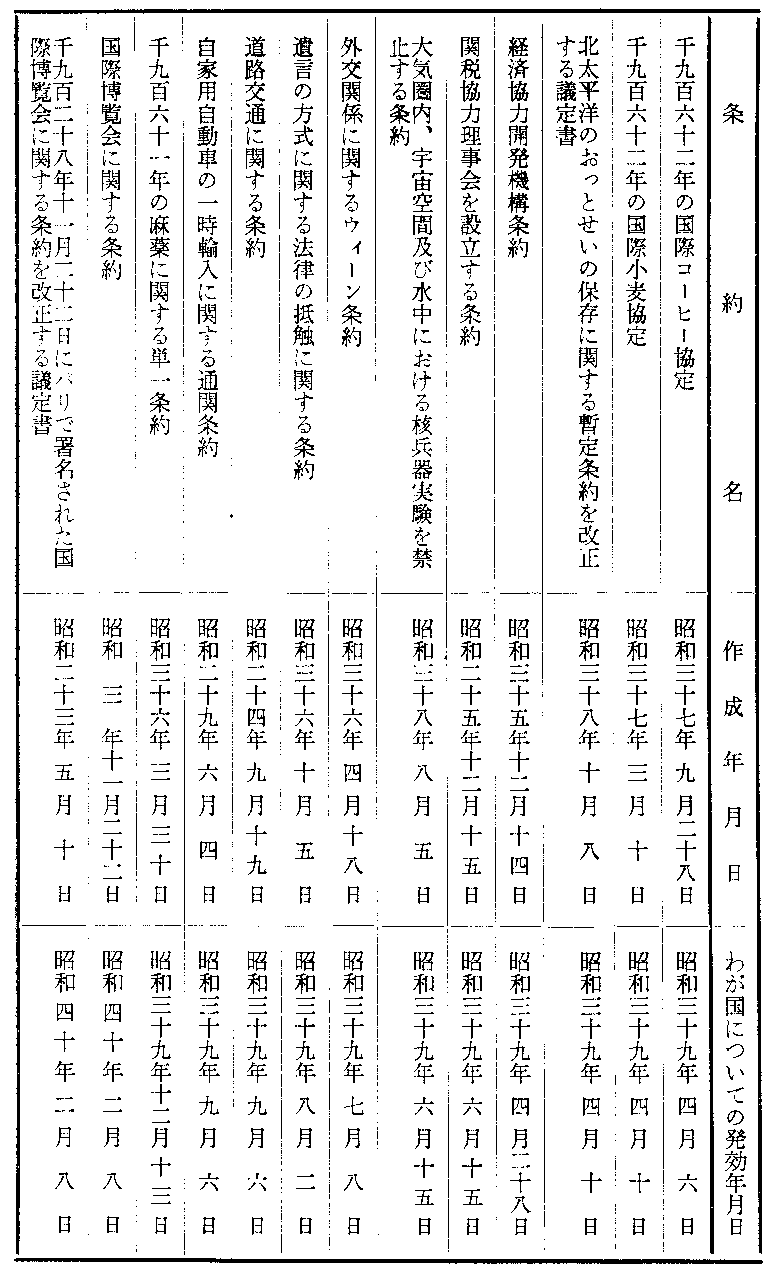 条約名 作成年月日 わが国についての発効年月日
千九百六十二年の国際コーヒー協定 昭和三十七年九月二十八日 昭和三十九年四月六日
千九百六十二年の国際小麦協定 昭和三十七年三月十日 昭和三十九年四月十日
北太平洋のおっとせいの保存に関する暫定条約を改正
する議定書 昭和三十八年十月八日 昭和三十九年四月十日
経済協力開発機構条約 昭和三十五年十二月十四日 昭和三十九年四月二十八日
関税協力理事会を設立する条約 昭和二十五年十二月十五日 昭和三十九年六月十五日
大気圏内、宇宙空間及び水中における核兵器実験を禁
止する条約 昭和三十八年八月五日 昭和三十九年六月十五日
外交関係に関するウィーン条約 昭和三十六年四月十八日 昭和三十九年七月八日
遺言の方式に関する法律の抵触に関する条約 昭和三十六年十月五日 昭和三十九年八月二日
道路交通に関する条約 昭和二十四年九月十九日 昭和三十九年九月六日
自家用自動車の一時輸入に関する通関条約 昭和二十九年六月四日 昭和三十九年九月六日
千九百六十一年の麻薬に関する単一条約 昭和三十六年三月三十日 昭和三十九年十二月十三日
国際博覧会に関する条約 昭和三年十一月二十二日 昭和四十年二月八日
千九百二十八年十一月二十二日にパリで署名された国
際博覧会に関する条約を改正する議定書 昭和二十三年五月十日 昭和四十年二月八日